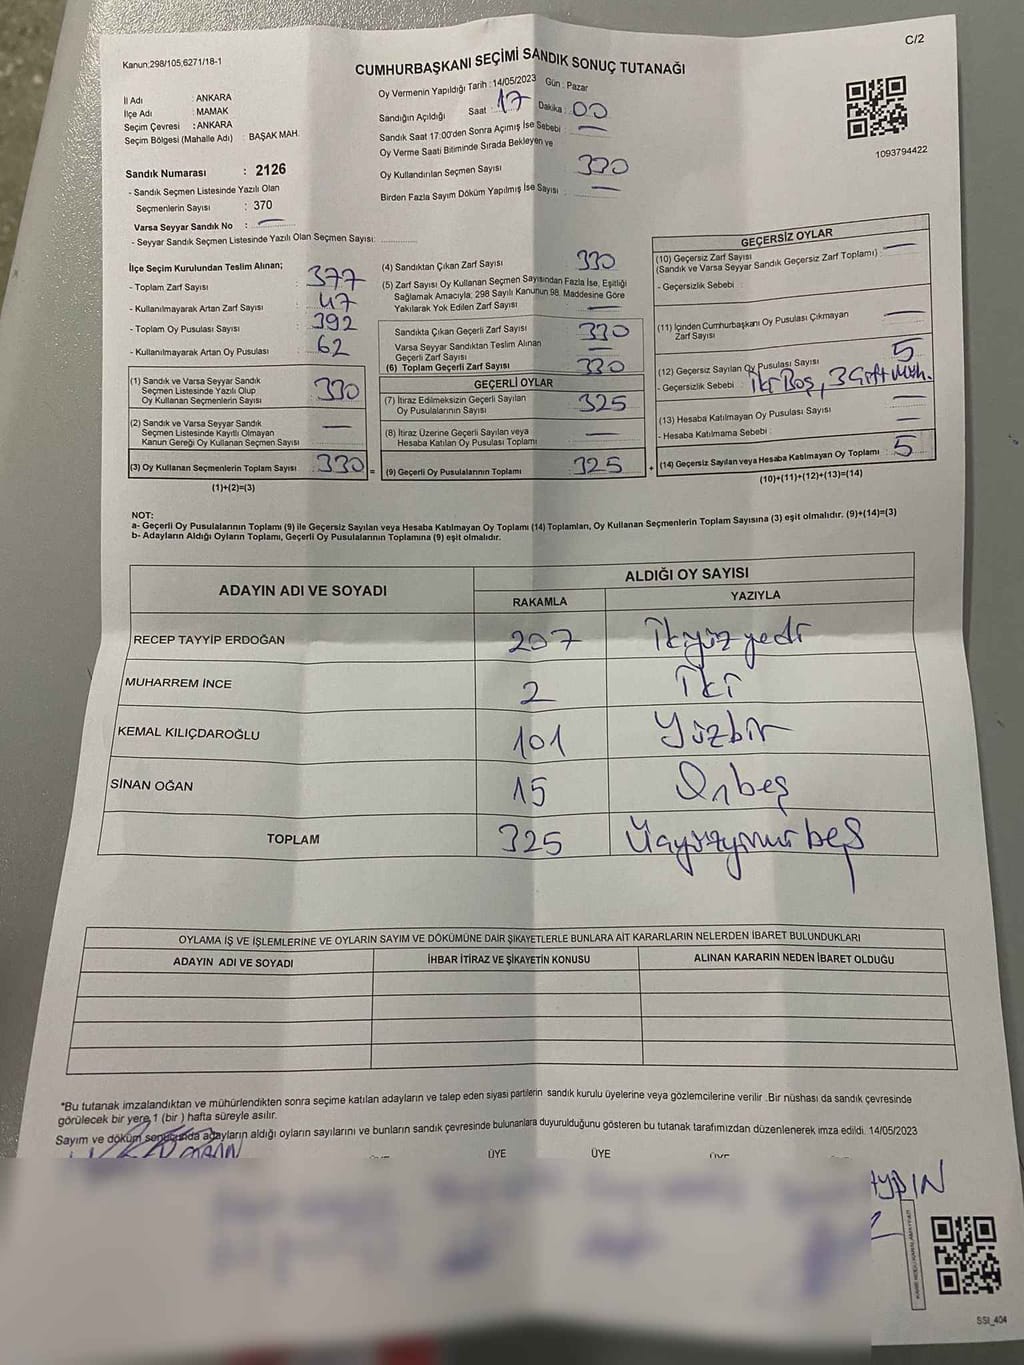 C/2
Kanun:298/105,6271/18-1
CUMHURBAŞKANI SEÇİMİ SANDIK SONUÇ TUTANAĞI
1093794422
İl Adı : ANKARA
İlçe Adı : MAMAK
Seçim Çevresi : ANKARA
Seçim Bölgesi (Mahalle Adı) : BAŞAK MAH.
Sandık Numarası : 2126
- Sandık Seçmen Listesinde Yazılı Olan
Seçmenlerin Sayısı : 370
Varsa Seyyar Sandık No : —
- Seyyar Sandık Seçmen Listesinde Yazılı Olan Seçmen Sayısı:
Oy Vermenin Yapıldığı Tarih : 14/05/2023 Gün : Pazar
Sandığın Açıldığı Saat : 17 Dakika : 00
Sandık Saat 17:00'den Sonra Açımış İse Sebebi : —
Oy Verme Saati Bitiminde Sırada Bekleyen ve
Oy Kullandırılan Seçmen Sayısı 330
Birden Fazla Sayım Döküm Yapılmış İse Sayısı : —
İlçe Seçim Kurulundan Teslim Alınan;
- Toplam Zarf Sayısı : 377
- Kullanılmayarak Artan Zarf Sayısı : 47
- Toplam Oy Pusulası Sayısı : 392
- Kullanılmayarak Artan Oy Pusulası : 62
(1) Sandık ve Varsa Seyyar Sandık
Seçmen Listesinde Yazılı Olup
Oy Kullanan Seçmenlerin Sayısı : 330
(2) Sandık ve Varsa Seyyar Sandık
Seçmen Listesinde Kayıtlı Olmayan
Kanun Gereği Oy Kullanan Seçmen Sayısı : —
(3) Oy Kullanan Seçmenlerin Toplam Sayısı : 330 =
(1)+(2)=(3)
(4) Sandıktan Çıkan Zarf Sayısı : 330
(5) Zarf Sayısı Oy Kullanan Seçmen Sayısından Fazla İse, Eşitliği
Sağlamak Amacıyla; 298 Sayılı Kanunun 98. Maddesine Göre
Yakılarak Yok Edilen Zarf Sayısı : —
Sandıkta Çıkan Geçerli Zarf Sayısı : 330
Varsa Seyyar Sandıktan Teslim Alınan
Geçerli Zarf Sayısı : —
(6) Toplam Geçerli Zarf Sayısı : 330
GEÇERLİ OYLAR
(7) İtiraz Edilmeksizin Geçerli Sayılan
Oy Pusulalarının Sayısı : 325
(8) İtiraz Üzerine Geçerli Sayılan veya
Hesaba Katılan Oy Pusulası Toplamı : —
(9) Geçerli Oy Pusulalarının Toplamı : 325 +
GEÇERSİZ OYLAR
(10) Geçersiz Zarf Sayısı
(Sandık ve Varsa Seyyar Sandık Geçersiz Zarf Toplamı) : —
- Geçersizlik Sebebi :
(11) İçinden Cumhurbaşkanı Oy Pusulası Çıkmayan
Zarf Sayısı : —
(12) Geçersiz Sayılan Oy Pusulası Sayısı : 5
- Geçersizlik Sebebi : İki Boş, 3 Çift Müh.
(13) Hesaba Katılmayan Oy Pusulası Sayısı : —
- Hesaba Katılmama Sebebi : —
(14) Geçersiz Sayılan veya Hesaba Katılmayan Oy Toplamı : 5
(10)+(11)+(12)+(13)=(14)
NOT:
a- Geçerli Oy Pusulalarının Toplamı (9) ile Geçersiz Sayılan veya Hesaba Katılmayan Oy Toplamı (14) Toplamları, Oy Kullanan Seçmenlerin Toplam Sayısına (3) eşit olmalıdır. (9)+(14)=(3)
b- Adayların Aldığı Oyların Toplamı, Geçerli Oy Pusulalarının Toplamına (9) eşit olmalıdır.
ADAYIN ADI VE SOYADI ALDIĞI OY SAYISI
RAKAMLA YAZIYLA
RECEP TAYYİP ERDOĞAN 207 İkiyüzyedi
MUHARREM İNCE 2 İki
KEMAL KILIÇDAROĞLU 101 Yüzbir
SİNAN OĞAN 15 Onbeş
TOPLAM 325 Üçyüzyirmi beş
OYLAMA İŞ VE İŞLEMLERİNE VE OYLARIN SAYIM VE DÖKÜMÜNE DAİR ŞİKAYETLERLE BUNLARA AİT KARARLARIN NELERDEN İBARET BULUNDUKLARI
ADAYIN ADI VE SOYADI İHBAR İTİRAZ VE ŞİKAYETİN KONUSU ALINAN KARARIN NEDEN İBARET OLDUĞU
*Bu tutanak imzalandıktan ve mühürlendikten sonra seçime katılan adayların ve talep eden siyasi partilerin sandık kurulu üyelerine veya gözlemcilerine verilir .Bir nüshası da sandık çevresinde
görülecek bir yere 1 (bir ) hafta süreyle asılır.
Sayım ve döküm sonucunda adayların aldığı oyların sayılarını ve bunların sandık çevresinde bulunanlara duyurulduğunu gösteren bu tutanak tarafımızdan düzenlenerek imza edildi. 14/05/2023
ÜYE ÜYE
SSI_404